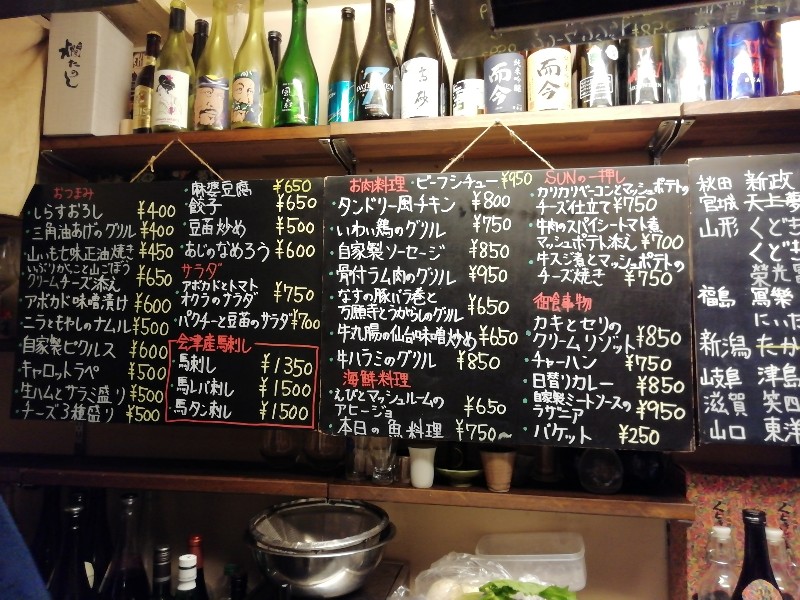 欄たのし
而今
而今
おつまみ
しらすおろし ¥400
三角油あげのグリル ¥400
山いも七味正油焼き ¥450
いぶりがっこと山ごぼう
クリームチーズ添え ¥650
アボカド味噌漬け ¥600
ニラともやしのナムル ¥500
自家製ピクルス ¥600
キャロットラペ ¥500
生ハムとサラミ盛り ¥500
チーズ3種盛り ¥500
麻婆豆腐 ¥650
餃子 ¥650
豆苗炒め ¥500
あじのなめろう ¥600
サラダ
アボカドとトマト
オクラのサラダ ¥750
パクチーと豆苗のサラダ ¥700
会津産馬刺し
馬刺し ¥1350
馬レバ刺し ¥1500
馬タン刺し ¥1500
お肉料理
ビーフシチュー ¥950
タンドリー風チキン ¥800
いわい鶏のグリル ¥750
自家製ソーセージ ¥850
骨付ラム肉のグリル ¥950
なすの豚バラ巻と
万願寺とうがらしのグリル ¥650
牛丸腸の仙台味噌炒め ¥650
牛ハラミのグリル ¥850
海鮮料理
えびとマッシュルームの
アヒージョ ¥650
本日の魚料理 ¥750〜
SUNの一押し
カリカリベーコンとマッシュポテトの
チーズ仕立て ¥750
牛肉のスパイシートマト煮
マッシュポテト添え ¥700
牛スジ煮とマッシュポテトの
チーズ焼き ¥750
御食事物
カキとセリの
クリームリゾット ¥850
チャーハン ¥750
日替りカレー ¥850
自家製ミートソースの
ラザニア ¥950
バケット ¥250
秋田 新政
宮城 天上夢
山形 くどき
くどき
栄光
福島 寫樂
にいだ
新潟 たか
岐阜 津島
滋賀 笑四
山口 東洋